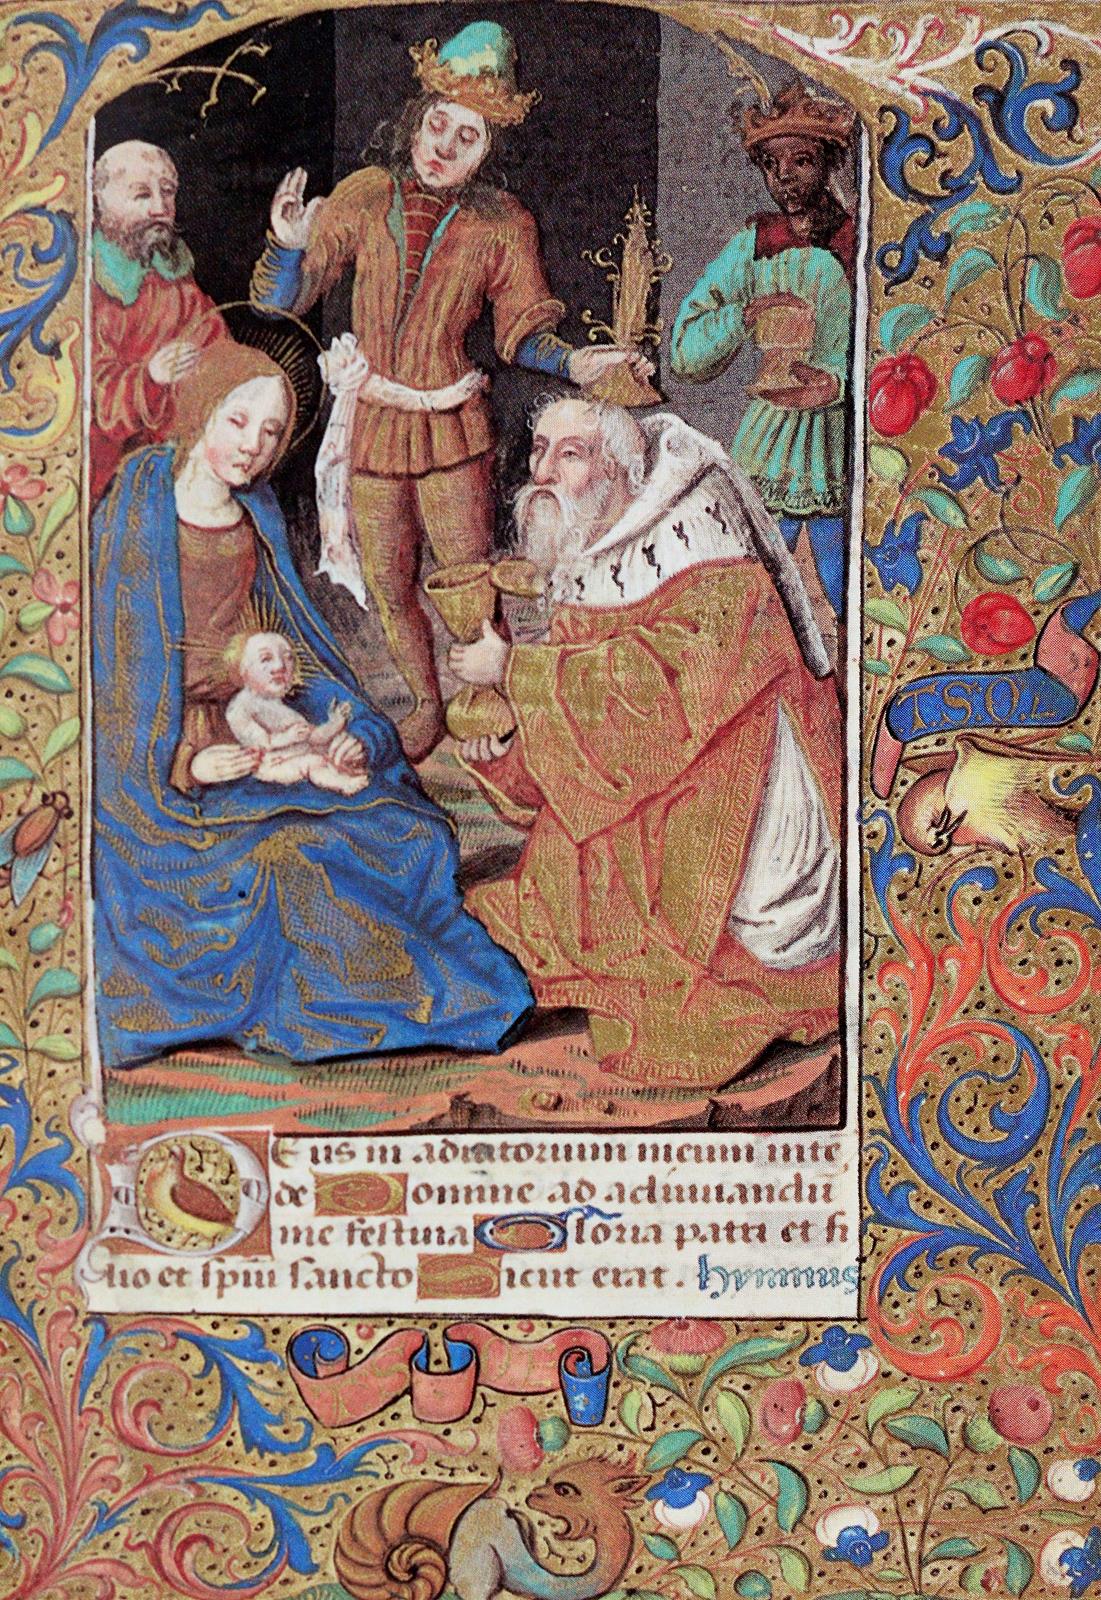 T.S.O.L
Deus in adiutorium meum inte
de Domine ad adiuuandū
me festina Gloria patri et fi
lio et spūi sancto Sicut erat. hymnus